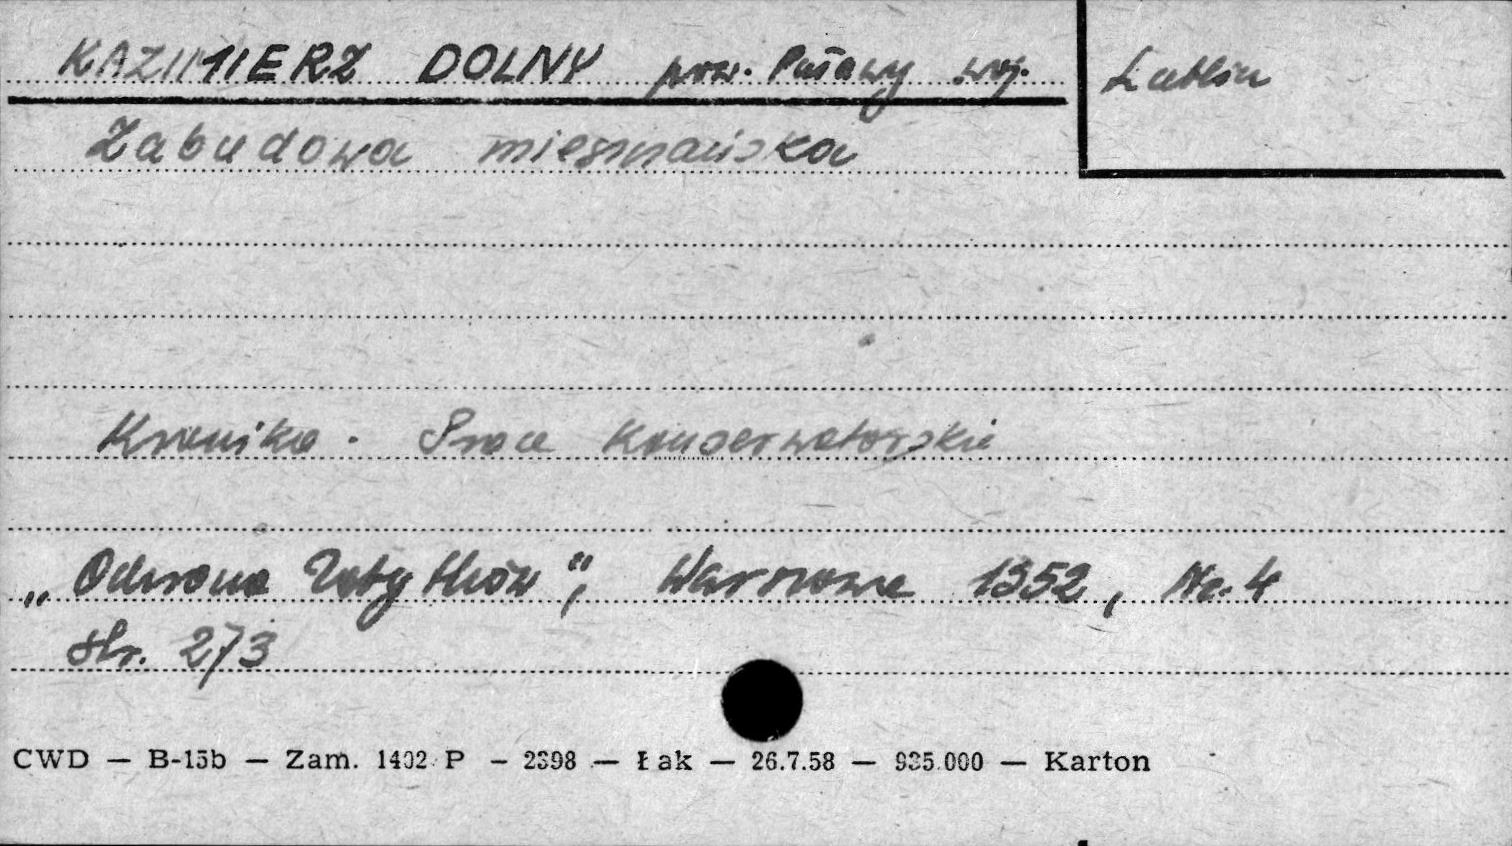 KAZIMIERZ DOLNY pow. Puławy woj. Lublin
Zabudowa mieszczańska
Kronika. Prace Konserwatorskie
„Ochrona Zabytków", Warszawa 1952, Nr. 4
str. 273
CWD — B-15b — Zam. 1402 P — 2398 — Łak — 26.7.58 — 935.000 — Karton